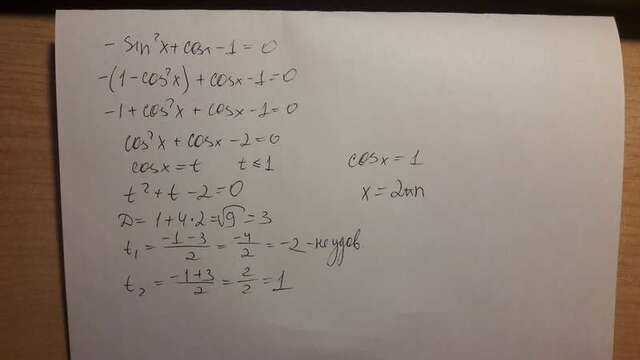 - sin²x + cosx - 1 = 0
-(1 - cos²x) + cosx - 1 = 0
-1 + cos²x + cosx - 1 = 0
cos²x + cosx - 2 = 0
cosx = t t ≤ 1
t² + t - 2 = 0
D = 1 + 4·2 = √9 = 3
t₁ = (-1-3)/2 = -4/2 = -2 - неудов.
t₂ = (-1+3)/2 = 2/2 = 1
cosx = 1
x = 2πn